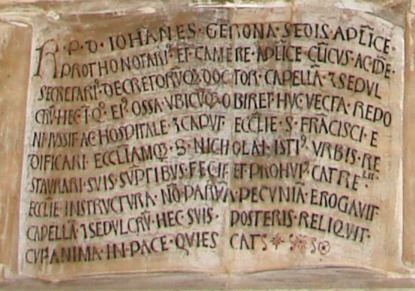 R · P · D · IOHANES · GERONA · SEDIS · APLICE ·
PROTHONOTARI9 · ET · CAMERE · APLICE · CLICVS · AC · IDE ·
SECRETARI9 · DECRETORVQ3 · DOCTOR · CAPELLA · SEDVL
CRV · HEC · T Q · EI9 · OSSA · VBICVQ3 · OBIRET · HVC · VECTA · REPO
NI · IVSSIT · AC · HOSPITALE · CAPVT · ECCLIE · S · FRACISCI · E
DIFICARI · ECCLIAMQ3 · S · NICHOLAI · ISTI9 · VRBIS · RE
STAVRARI · SVIS · SVPTIBVS · FECIT · ET · PRO · HVI9 · CATRE
ECCLIE · INSTRVCTVRA · NO · PARVA · PECVNIA · EROGAVIT
CAPELLA · SEDVLCRV · HEC · SVIS · POSTERIS · RELIQVIT ·
CVI9 · ANIMA · IN · PACE · QVIES CAT